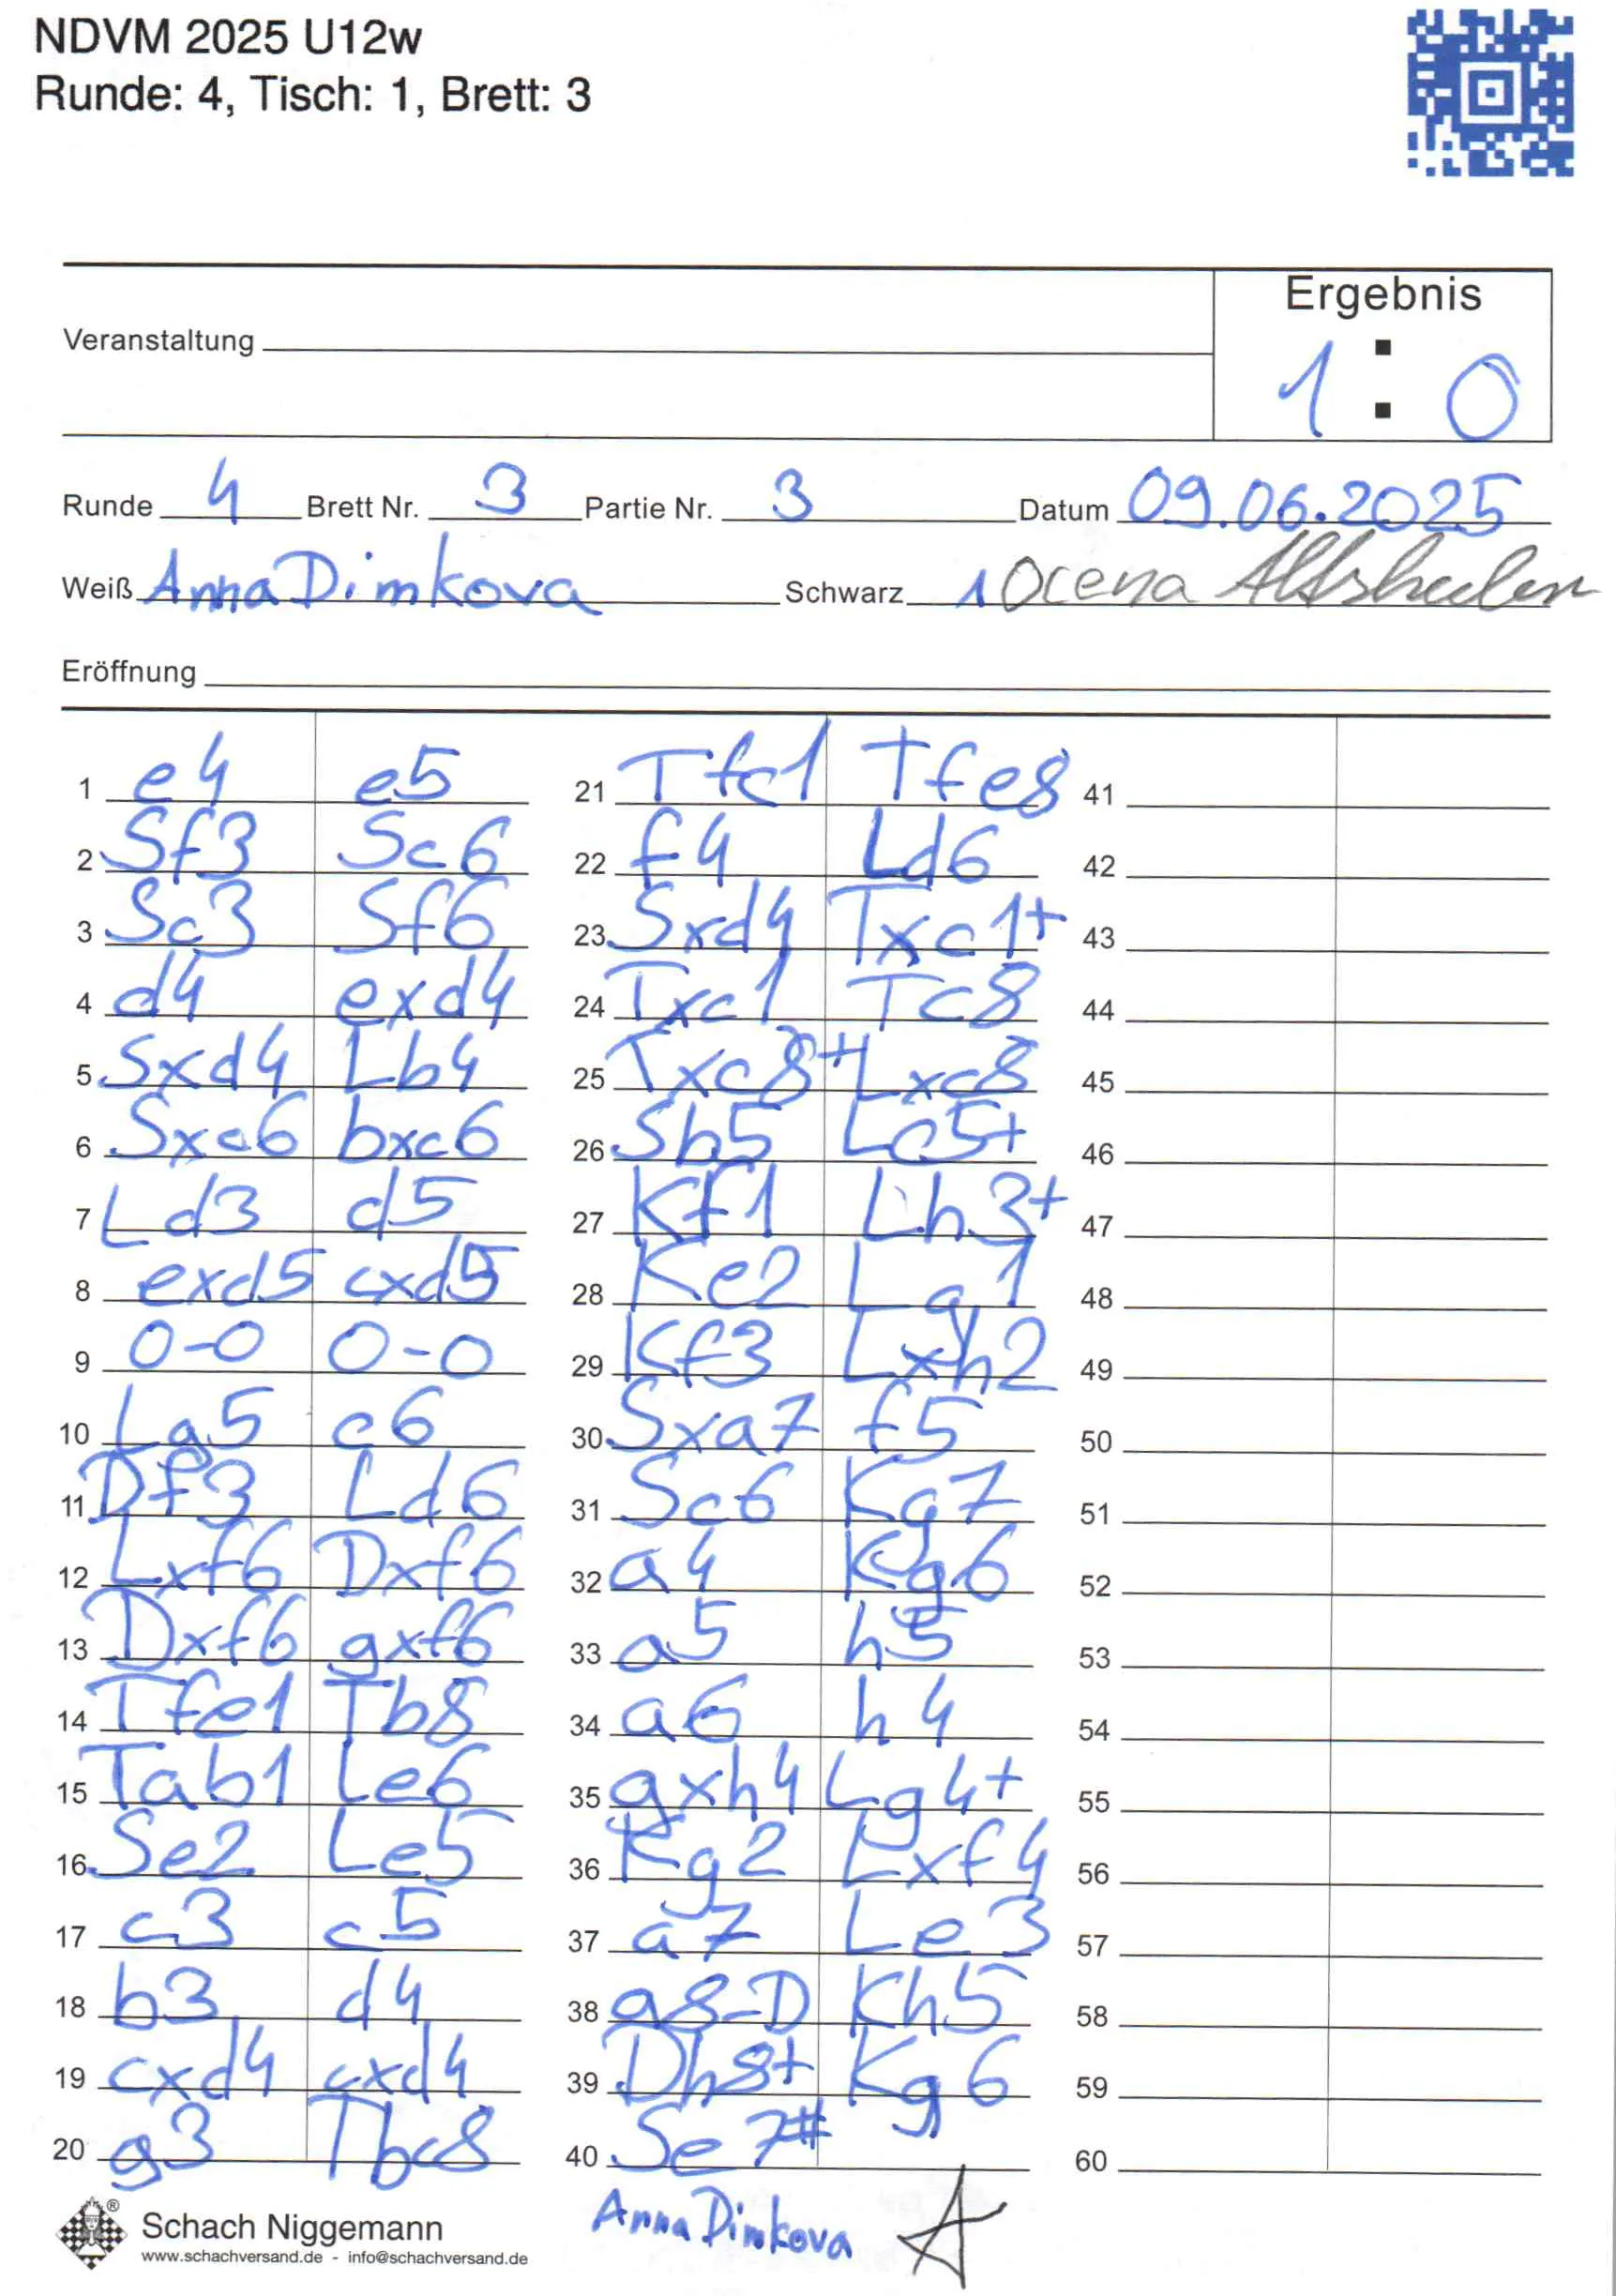 NDVM 2025 U12w
Runde: 4, Tisch: 1, Brett: 3
Ergebnis
Veranstaltung
1 : 0
Runde 4 Brett Nr. 3 Partie Nr. 3 Datum 09.06.2025
Weiß Anna Dimkova Schwarz 1 Ocena
Eröffnung
1 e4 e5 21 Tfc1 Tfe8 41
2 Sf3 Sc6 22 f4 Ld6 42
3 Sc3 Sf6 23 Sxd4 Txc1+ 43
4 d4 exd4 24 Txc1 Tc8 44
5 Sxd4 Lb4 25 Txc8+ Lxc8 45
6 Sxc6 bxc6 26 Sb5 Lc5+ 46
7 Ld3 d5 27 Kf1 Lh3+ 47
8 exd5 cxd5 28 Ke2 Lg1 48
9 0-0 0-0 29 Kf3 Lxh2 49
10 Lg5 c6 30 Sxa7 f5 50
11 Df3 Ld6 31 Sc6 Kg7 51
12 Lxf6 Dxf6 32 a4 Kg6 52
13 Dxf6 gxf6 33 a5 h5 53
14 Tfe1 Tb8 34 a6 h4 54
15 Tab1 Le6 35 gxh4 Lg4+ 55
16 Se2 Le5 36 Kg2 Lxf4 56
17 c3 c5 37 a7 Le3 57
18 b3 d4 38 a8-D Kh5 58
19 cxd4 cxd4 39 Dh8+ Kg6 59
20 g3 Tbc8 40 Se7# 60
Schach Niggemann
www.schachversand.de - info@schachversand.de
Anna Dimkova